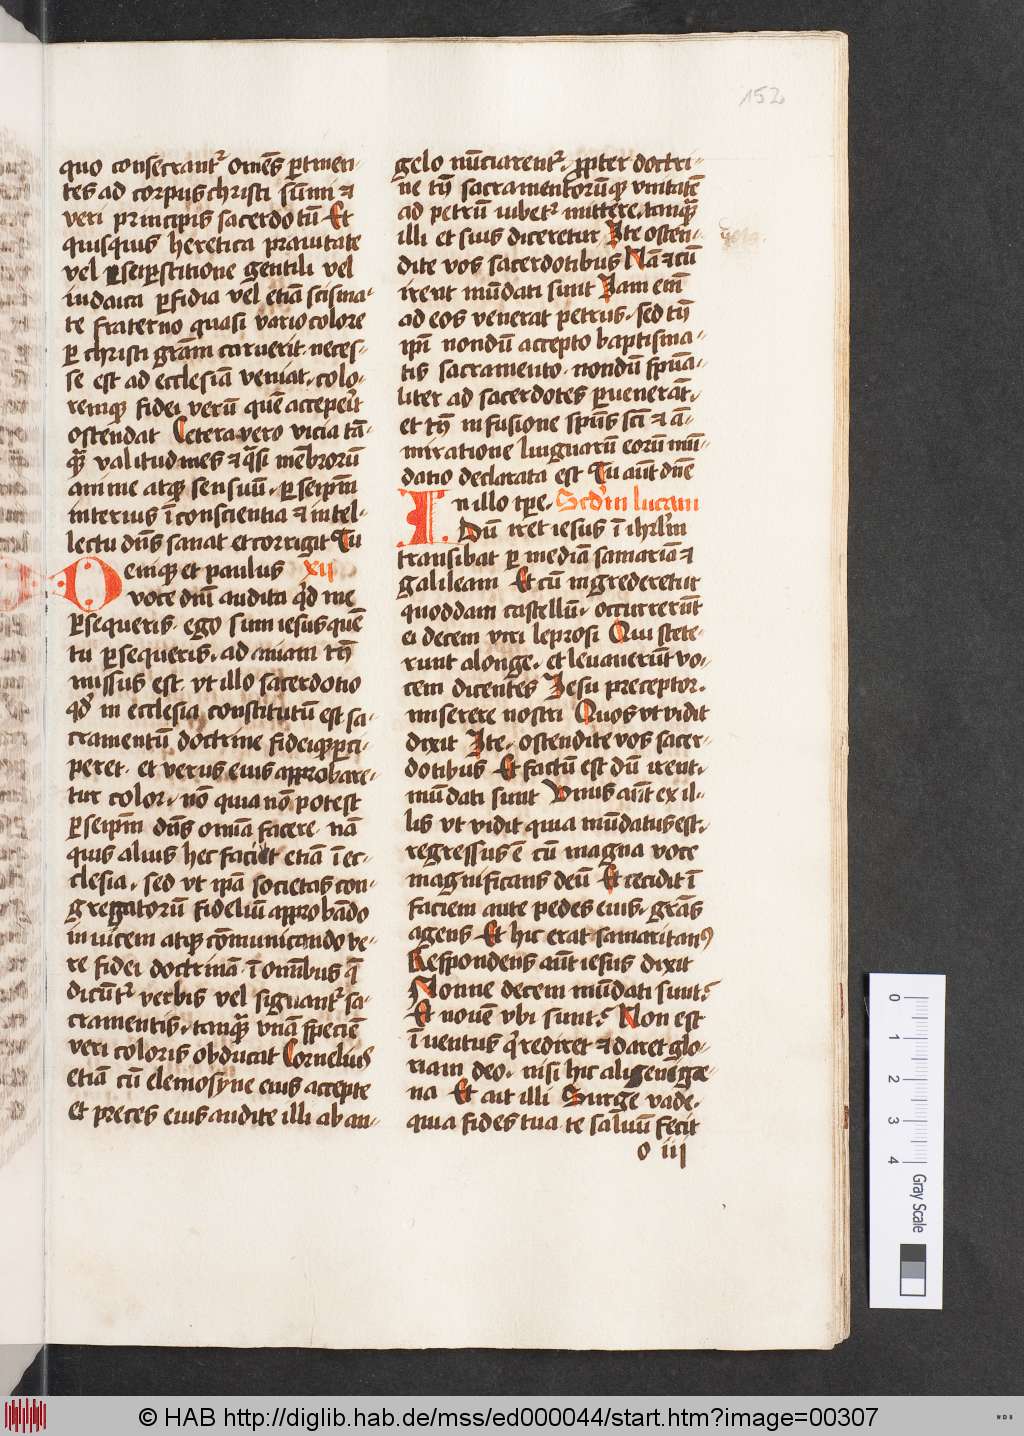 152
quo consecrant᷑ om̄es ꝑtinen-
tes ad corpus christi su᷑mi ⁊
veri principis sacerdotū Et
quisquis heretica prauitate
vel superstitione gentili vel
iudaica ꝑfidia vel etiā scisma-
te fraterno quasi vario colore
ꝑ christi grām caruerit neces-
se est ad ecclesiā veniat. colo-
remqꝫ fidei verū quē acceperīt
ostendat Cetera vero vicia tā-
qꝫ valitudines ⁊ q̄si mēbrorū
anime atqꝫ sensuū. ꝑ seip̄m
interius ī conscientia ⁊ intel-
lectu dn̄s sanat et corrigit Tu
Denique et paulus xij
voce dn̄i audita qd̄ me
ꝑsequeris. ego sum iesus quē
tu ꝑsequeris. ad ananiam tn̄
missus est. vt illo sacerdotio
qd̄ in ecclesia constitutū est sa-
cramentū doctrine fidei ꝑci-
peret. et verus eius approbare-
tur color. nō quia nō potest
ꝑ seip̄m dn̄s omīa facere. nā
quis alius hec facit etiā ī ec-
clesia. sed vt ip̄a societas con-
gregatorū fidelium approbādo
in uicem atqꝫ cōmunicando ve-
re fidei doctrinā. ī omībus q̄
dicūt᷑ verbis vel signant᷑ sa-
cramentis. tanqꝫ vnā speciē
veri coloris obducat Cornelius
etiā cū elemosyne eius accepte
et preces eius audite illi ab an-
gelo nūciarent᷑. ꝓpter doctri-
ne tn̄ sacramentorūqꝫ vnitatē
ad petrū iubet᷑ mittere. tanqꝫ
illi et suis diceretur Ite osten-
dite vos sacerdotibus Nā ⁊ cū
irent mūdati sunt Jam em̄
ad eos venerat petrus. sed tn̄
ip̄i nondū accepto baptisma-
tis sacramento. nondū spūa-
liter ad sacerdotes ꝑuenerāt.
et tn̄ infusione spūs sc̄i ⁊ am̄-
miratione linguarū eorū mū-
datio declarata est Tu aūt dn̄e
In illo tp̄e. Scd̄m lucam
Dū iret iesus ī ihrl̄m
transibat ꝑ mediā samariā ⁊
galileam Et cū ingrederetur
quoddam castellū. occurrerūt
ei decem viri leprosi Qui stete-
runt a longe. et leuauerūt vo-
cem dicentes Iesu preceptor.
miserere nostri Quos vt vidit
dixit Ite. ostendite vos sacer-
dotibus Et factū est dū irent.
mūdati sunt Vnus aūt ex il-
lis vt vidit quia mūdatus est.
regressus ē cū magna voce
magnificans deū Et cecidit ī
faciem ante pedes eius. grās
agens Et hic erat samaritanꝰ
Respondens aūt iesus dixit
Nonne decem mūdati sunt?
Et nouē vbi sunt? Non est
īuentus q̄ rediret ⁊ daret glo-
riam deo. nisi hic aligenige-
na Et ait illi Surge vade.
quia fides tua te saluū fecit
o iij
0 1 2 3 4
Gray Scale
© HAB http://diglib.hab.de/mss/ed000044/start.htm?image=00307